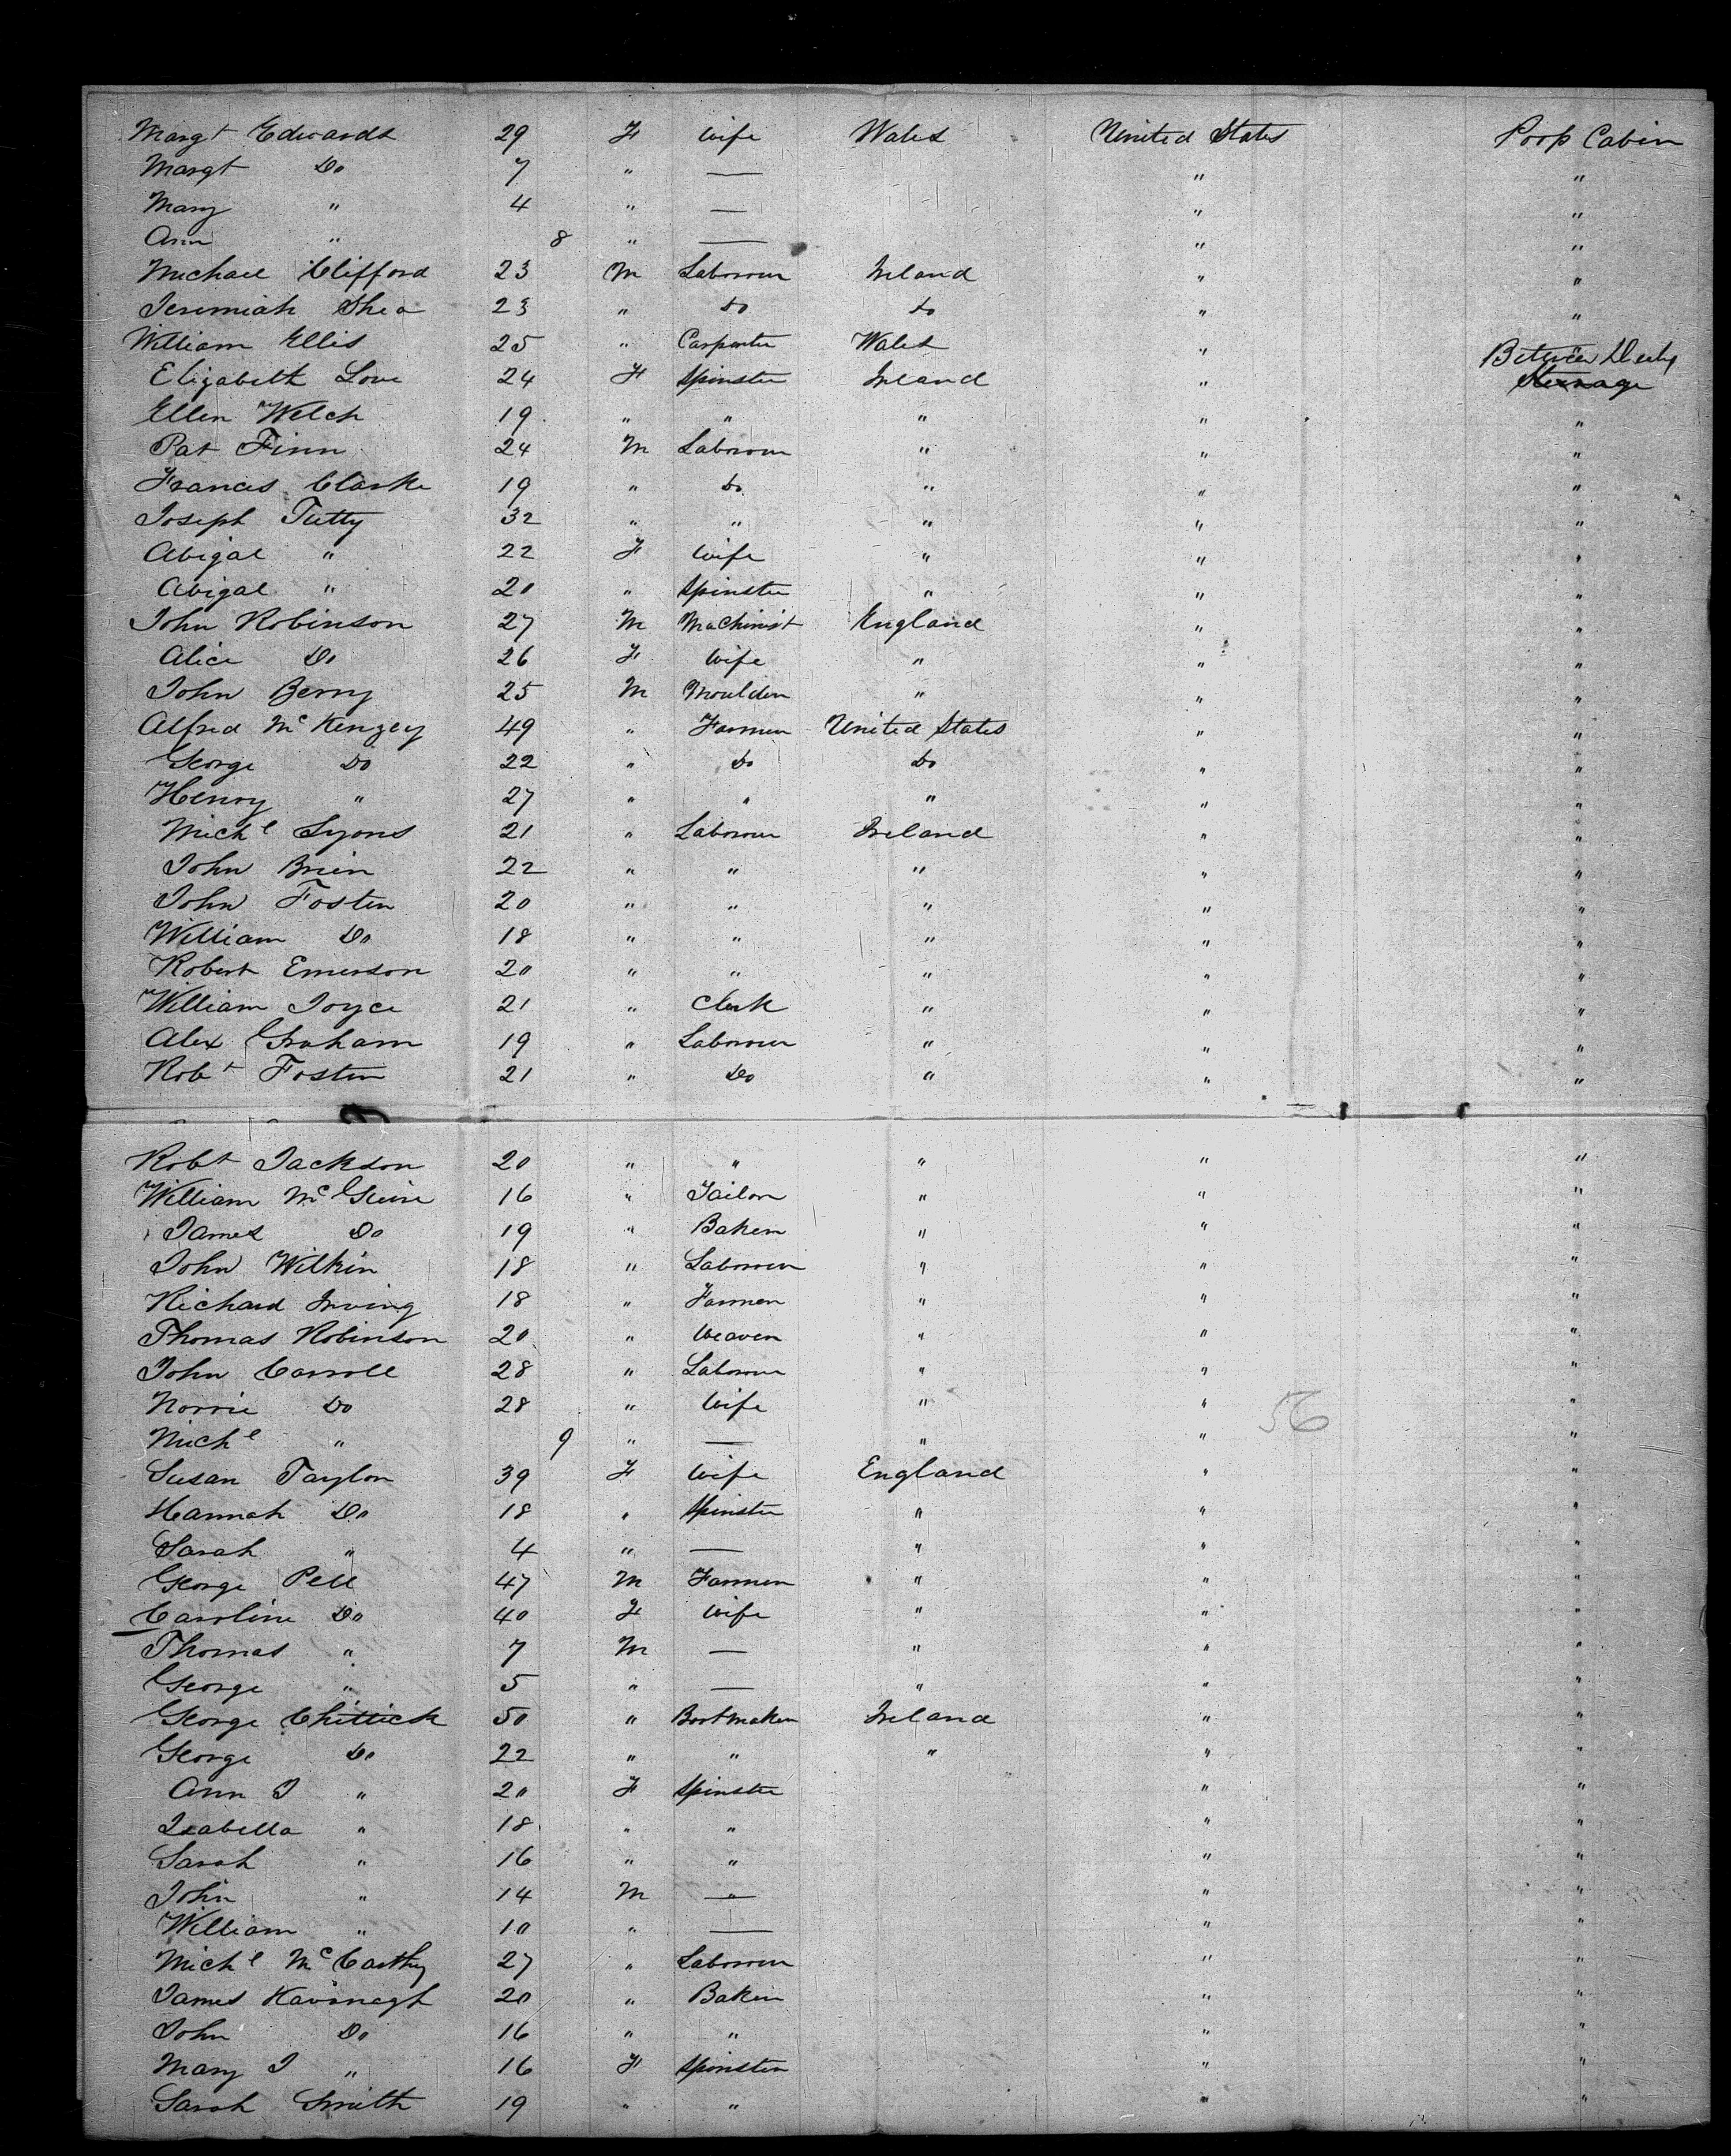 Margt Edwards 29 F Wife Wales United States Poop Cabin
Margt Do 7 " — " "
Mary " 4 " — " "
Ann " 8 " — " "
Michael Clifford 23 M Labourer Ireland " "
Jeremiah Shea 23 " do do " "
William Ellis 25 " Carpenter Wales " Between Decks
Elizabeth Love 24 F Spinster Ireland " Steerage
Ellen Welch 19 " " " " "
Pat Finn 24 M Labourer " " "
Francis Clarke 19 " Do " " "
Joseph Tutty 32 " " " " "
Abigal " 22 F Wife " " "
Abigal " 20 " Spinster " " "
John Robinson 27 M Machinist England " "
Alice Do 26 F Wife " " "
John Berry 25 M Moulder " " "
Alfred McKenzey 49 " Farmer United States " "
George Do 22 " Do Do " "
Henry " 27 " " " " "
Michl Lyons 21 " Labourer Ireland " "
John Brien 22 " " " " "
John Foster 20 " " " " "
William Do 18 " " " " "
Robert Emerson 20 " " " " "
William Joyce 21 " Clerk " " "
Alex Graham 19 " Labourer " " "
Robt Foster 21 " Do " " "
Robt Jackson 20 " " " " "
William McGuire 16 " Tailor " " "
James Do 19 " Baker " " "
John Wilkin 18 " Labourer " " "
Richard Irving 18 " Farmer " " "
Thomas Robinson 20 " Weaver " " "
John Carroll 28 " Labourer " " "
Norrie Do 28 " Wife " " " 56
Michl " 9 " — " " "
Susan Taylor 39 F Wife England " "
Hannah Do 18 " Spinster " " "
Sarah " 4 " — " " "
George Pell 47 M Farmer " " "
Caroline Do 40 F Wife " " "
Thomas " 7 M — " " "
George " 5 " — " " "
George Chittick 50 " Bootmaker Ireland " "
George Do 22 " " " " "
Ann J " 20 F Spinster " "
Isabella " 18 " " " "
Sarah " 16 " " " "
John " 14 M — " "
William " 10 " — " "
Michl McCarthy 27 " Labourer " "
James Kavanagh 20 " Baker " "
John Do 16 " " " "
Mary J " 16 F Spinster " "
Sarah Smith 19 " " " "